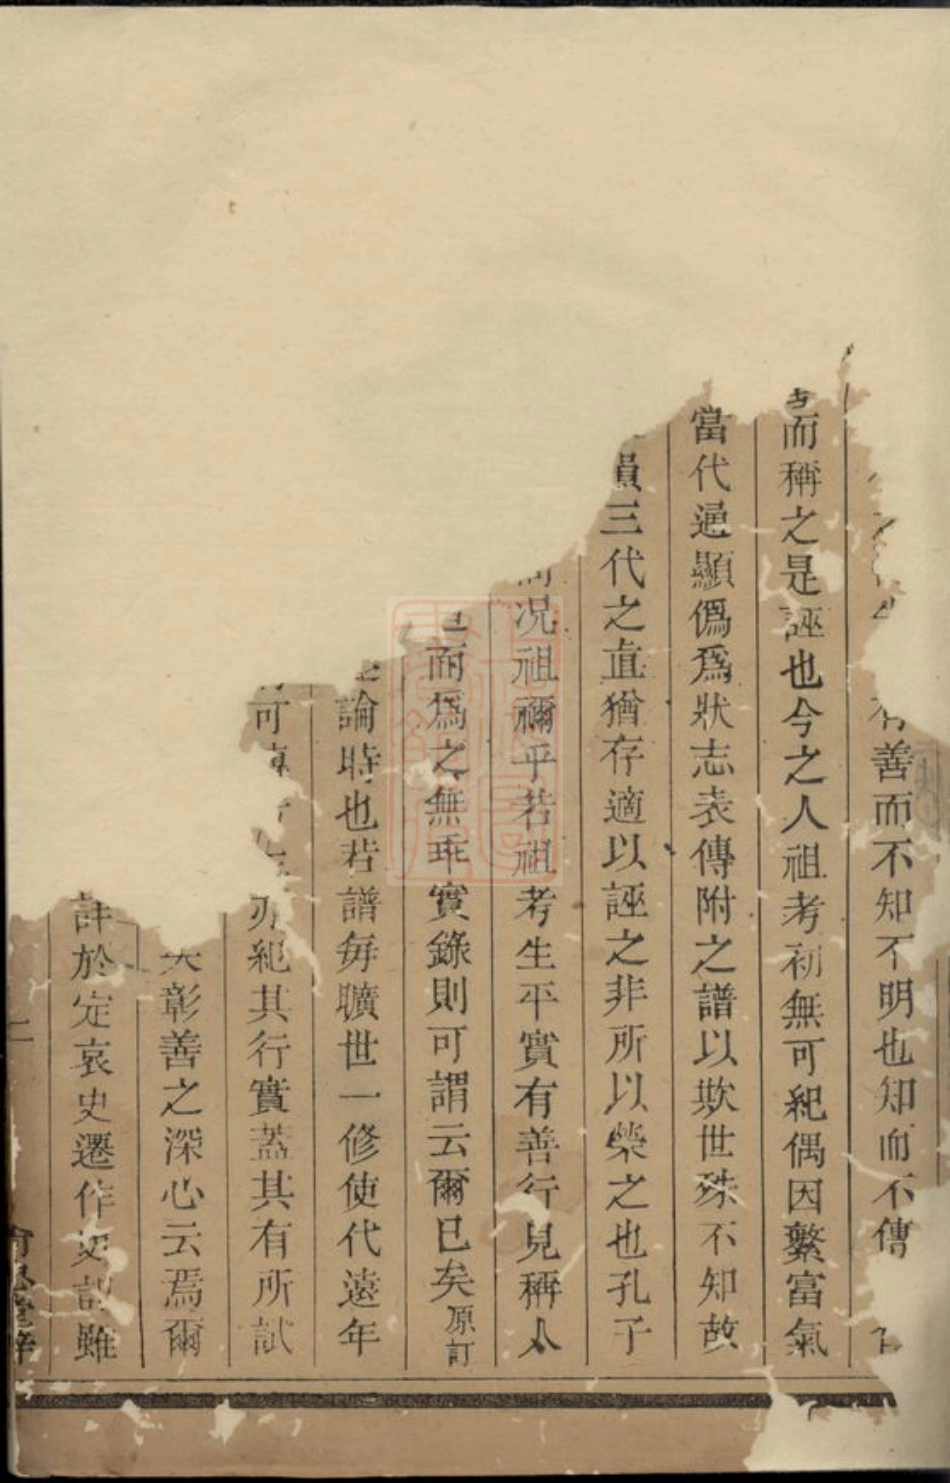 有善而不知不明也知而不傳
而稱之是誣也今之人祖考初無可紀偶因繫富氣
當代通顯僞爲狀志表傳附之譜以欺世殊不知故
員三代之直猶存適以誣之非所以榮之也孔子
况祖禰乎若祖考生平實有善行見稱人
而爲之無乖實錄則可謂云爾已矣原訂
論時也若譜每曠世一修使代遠年
可 亦紀其行實蓋其有所試
彰善之深心云焉爾
詳於定哀史遷作史記雖